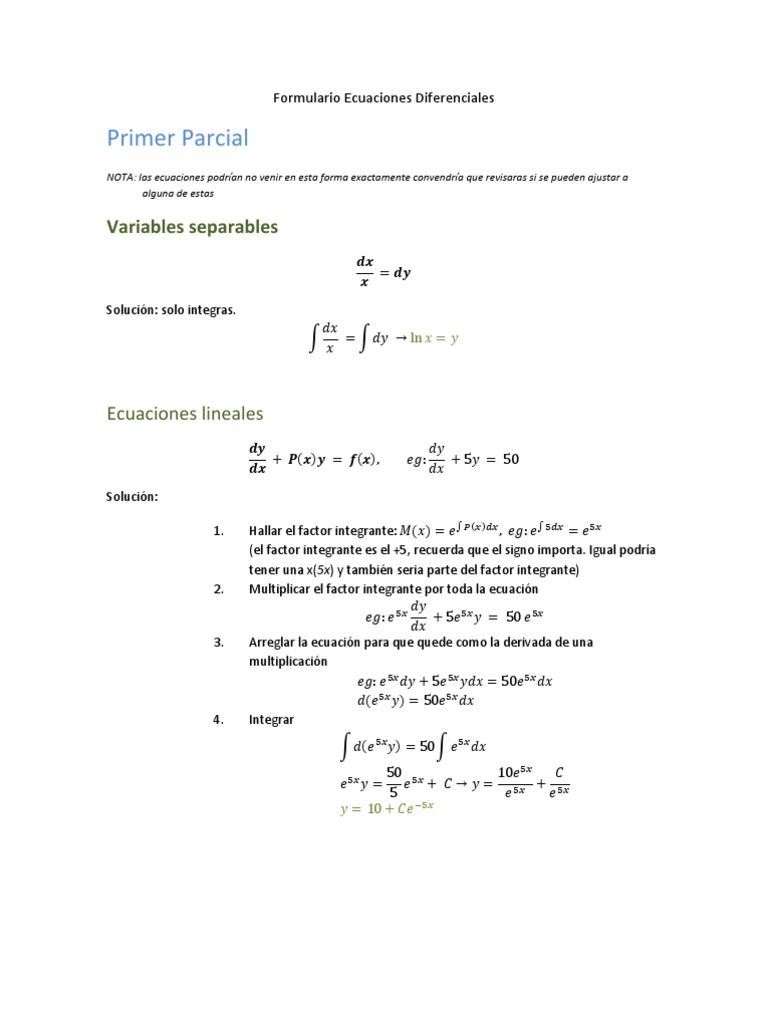 Formulario Ecuaciones Diferenciales
Primer Parcial
NOTA: las ecuaciones podrían no venir en esta forma exactamente convendría que revisaras si se pueden ajustar a
alguna de estas
Variables separables
dx/x = dy
Solución: solo integras.
∫ dx/x = ∫ dy → ln x = y
Ecuaciones lineales
dy/dx + P(x)y = f(x), eg: dy/dx + 5y = 50
Solución:
1. Hallar el factor integrante: M(x) = e^{∫P(x)dx}, eg: e^{∫5dx} = e^{5x}
(el factor integrante es el +5, recuerda que el signo importa. Igual podría
tener una x(5x) y también seria parte del factor integrante)
2. Multiplicar el factor integrante por toda la ecuación
eg: e^{5x} dy/dx + 5e^{5x}y = 50 e^{5x}
3. Arreglar la ecuación para que quede como la derivada de una
multiplicación
eg: e^{5x}dy + 5e^{5x}ydx = 50e^{5x}dx
d(e^{5x}y) = 50e^{5x}dx
4. Integrar
∫ d(e^{5x}y) = 50 ∫ e^{5x}dx
e^{5x}y = 50/5 e^{5x} + C → y = 10e^{5x}/e^{5x} + C/e^{5x}
y = 10 + Ce^{−5x}